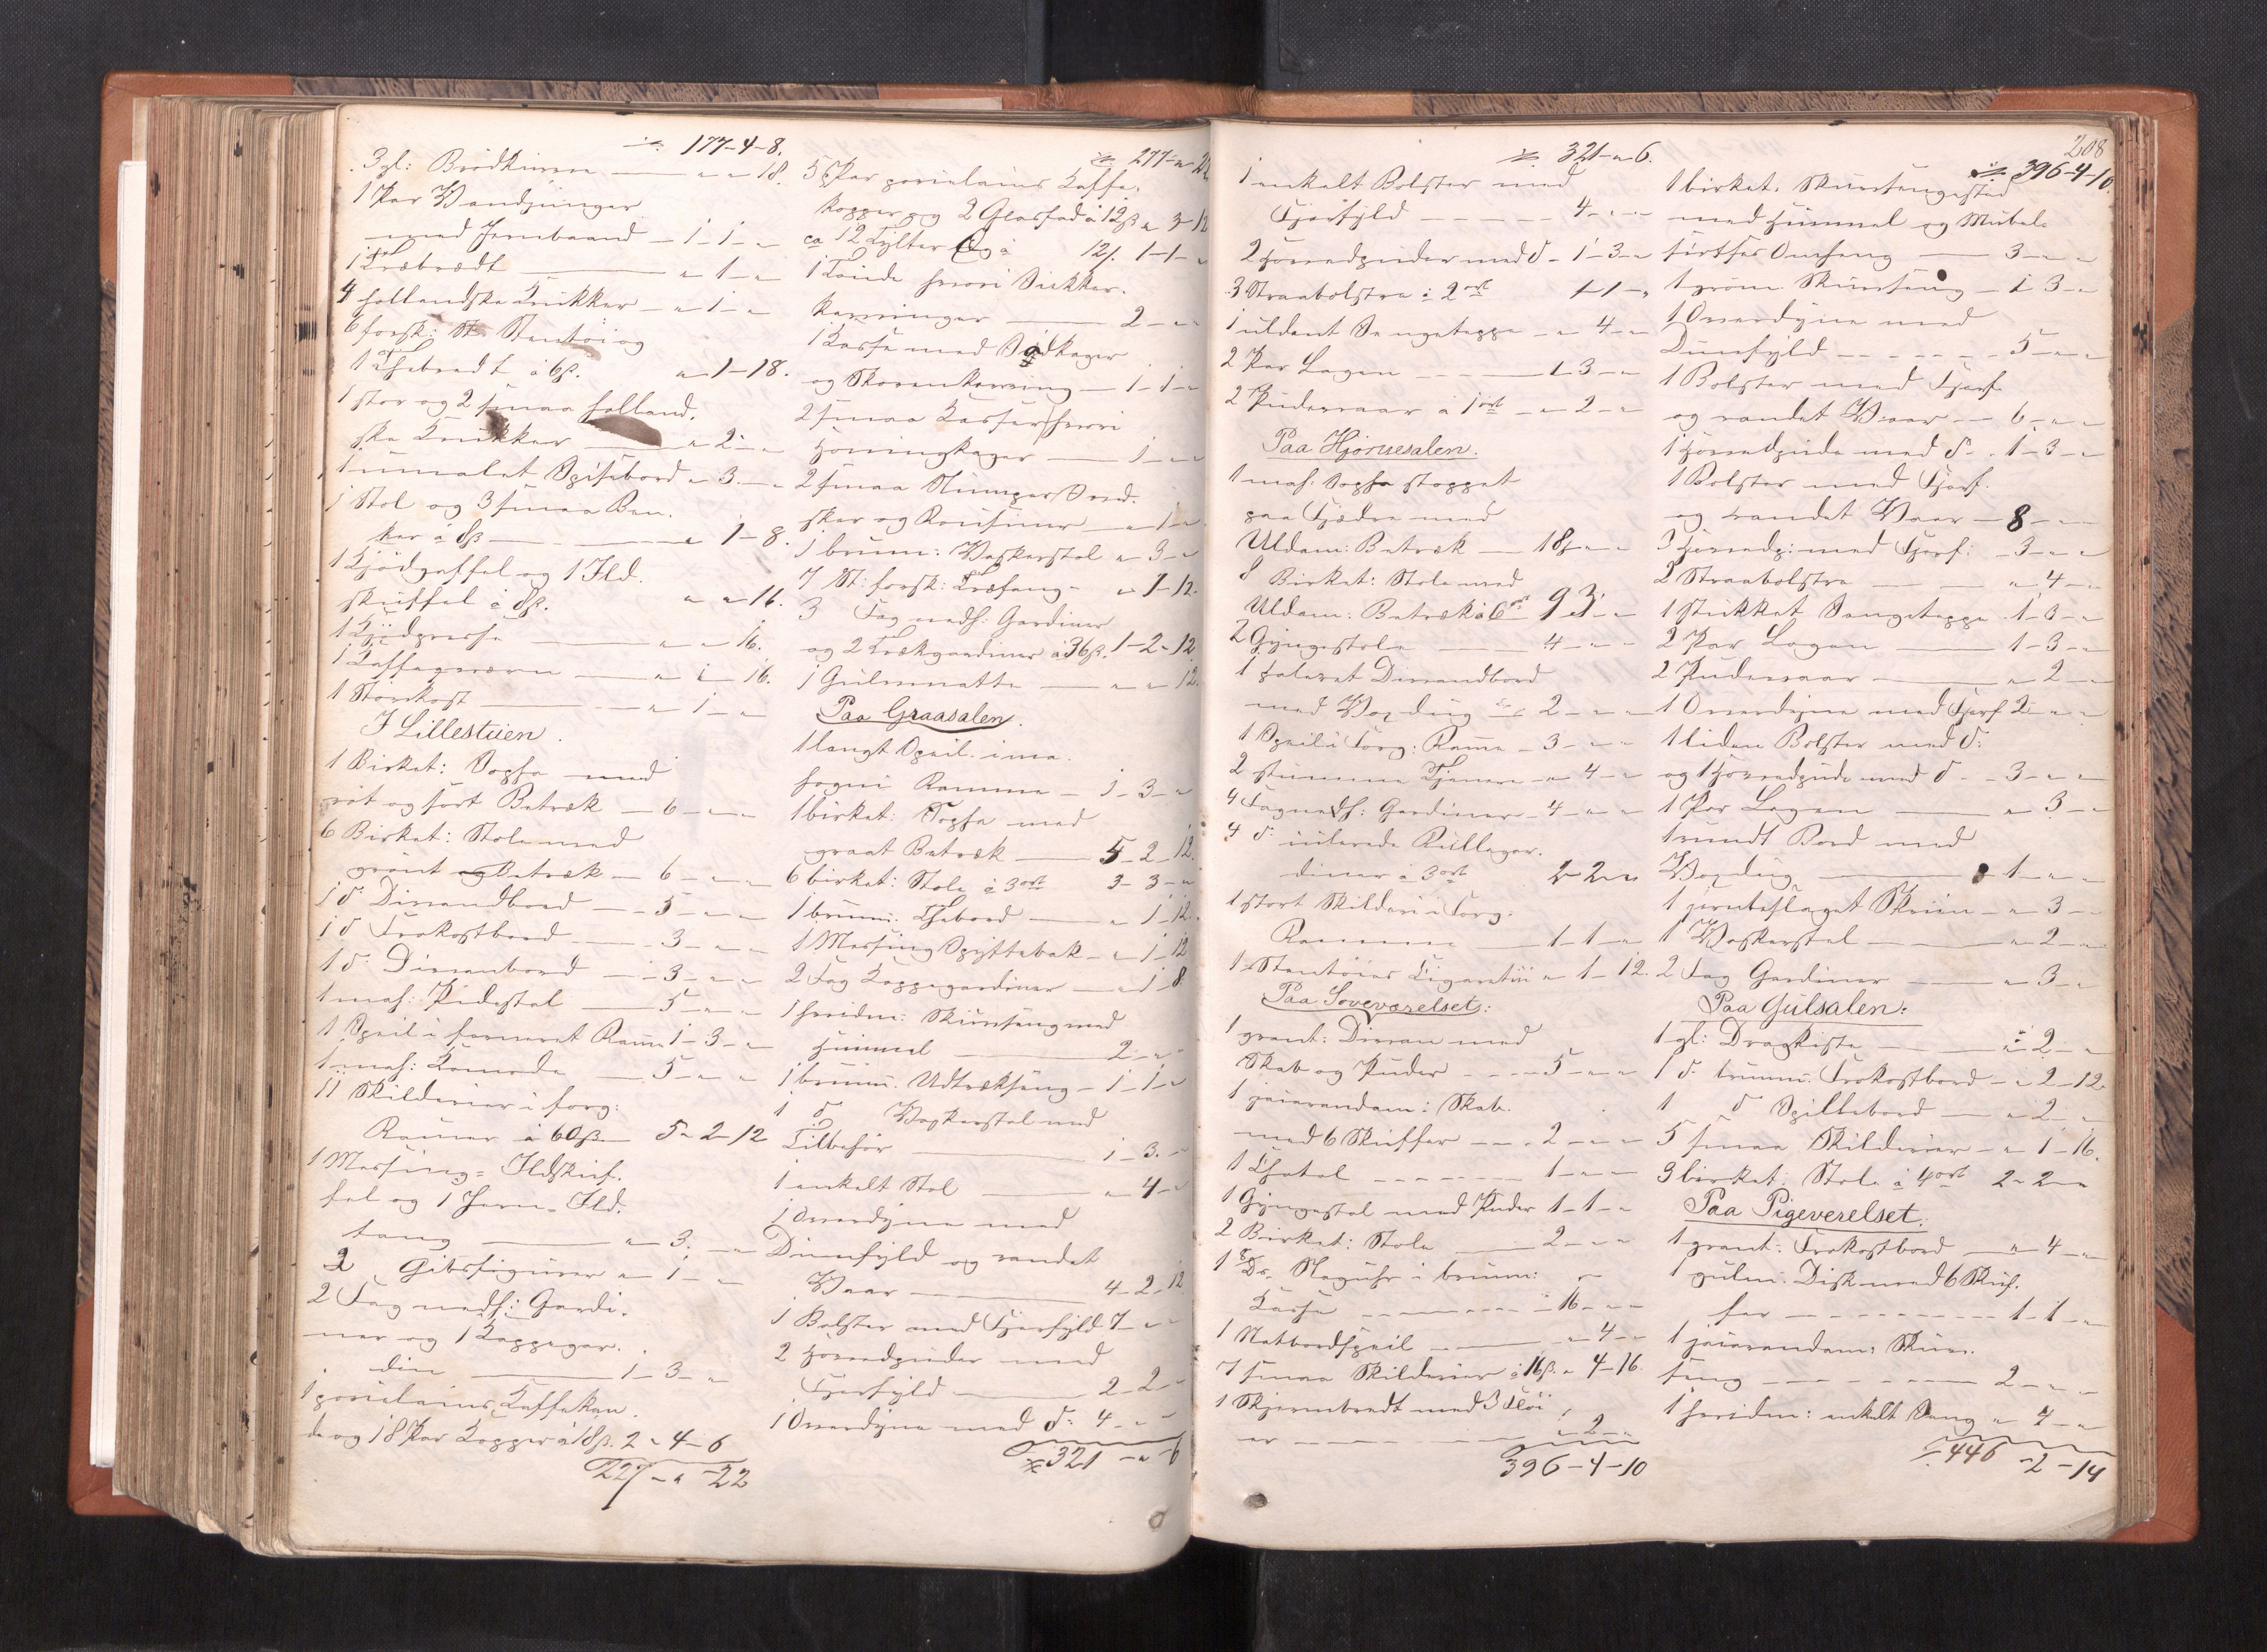 177-4-8.
3 gl: Brödkurve — " " 18.
1 Par Vandspringer
med Jernbaand — 1-1-"
1 Træbrædt — " 1 — "
4 hollandske Krukker — " 1 — "
6 forsk: St. Stentöi og
1 Thebrædt à 6ß. " 1-18.
1 stor og 2 smaa holland-
ske Krukker — " 2 — "
1 umalet Spisebord " 3 — "
1 Stol og 3 smaa Ben-
ker à 8ß — " 1-8.
1 Kjödgaffel og 1 Ild-
skuffel à 8ß. " " 16.
1 Kjödpresse — " " 16.
1 Kaffeqværn — " " 16.
1 Störkost — " 1 — "
I Lillestuen.
1 Birket: Sopha med
röt og sort Betræk — 6 — " "
6 Birket: Stole med
grönt Betræk — 6 — " "
1 d° Divandbord — 5 — " "
1 d° Frokostbord — 3 — " "
1 d° Divanbord — 3 — " "
1 mah: Pidestal — 5 — " "
1 Speil i forneret Rame 1-3-"
1 mah: Komode — 5 — " "
11 Skilderier i forg:
Ramer à 60ß — 5-2-12
1 Messing-Ildskuf-
fel og 1 Jern-Ild-
tang — " 3. —
2 Gibsfigurer " 1 — "
2 Fag nedh: Gardi-
ner og 1 Kappegar-
din — 1-3-"
1 porcelains Kaffekan-
de og 18 Par Kopper à 18ß. 2-4-6
227-"-22
277-"-22
5 Par porcelains Kaffe-
kopper og 2 Glasfad à 12ß " 3-12
ca 12 Tylter Æg à 12ß. 1-1-"
1 Tönde hvori Sukker-
kavringer — 2 — "
1 Kasse med Södkager
og Skovenkavring — 1-1-"
2 smaa Kasser hvori
Honningkager — 1 — "
2 smaa Slumper Sved-
sker og Rousiner — " 1 — "
1 brunm: Vaskerstol " 3 — "
7 St: forsk: Træfang - " 1-12.
3 Fag nedh: Gardiner
og 2 Trækgardiner à 36ß. 1-2-12
1 Gulvmatte — " " 12.
Paa Graasalen.
1 langt Speil i ma-
hogni Ramme — 1-3-"
1 birket: Sopha med
graat Betræk — 5-2-12.
6 birket: Stole à 3 ort 3-3-"
1 brunm: Thebord — " 1-12.
1 Messing Spyttebak — " 1-12
2 Fag Kappegardiner — " 1-8
1 hvidm: Skuvseng med
Himmel — 2 — " "
1 brunm: Udtrækseng — 1-1-"
1 d° Vaskerstol med
Tilbehör — 1-3-"
1 enkelt Stol — " 4 — "
1 Overdyne med
Dunfyld og randet
Vaar — 4-2-12
1 Bolster med Fjerfyld 7 — "
2 Hovedpuder med
Fjerfyld — 2-2-"
1 Overdyne med d°: 4 — " "
321-"-6
321-"-6.
1 enkelt Bolster med
Fjerfyld — 4 — " "
2 Hovedpuder med d° - 1-3-"
3 Straabolstre à 2 ort 1-1-"
1 uldent Sengeteppe — " 4 — "
2 Par Lagen — 1-3-"
2 Pudevaar à 1 ort — " 2 — "
Paa Hjörnesalen.
1 mah: Sopha stoppet
paa Fjædre med
Uldam: Betræk — 18 — " "
8 Birket: Stole med
Uldam: Betræk à 6 ort 9-3-"
2 Gyngestole — 4 — " "
1 poleret Divandbord
med Voxdug — 2 — " "
1 Speil i Forg: Rame — 3 — " "
2 stumme Tjenere — " 4 — "
4 Fag nedh: Gardiner — 4 — " "
4 d° — Rullegar-
diner à 3 ort 2-2-"
1 stort Skilderi i Forg:
Ramme — 1-1-"
1 Stentöies Cigaretui " 1-12.
Paa Soveværelset:
1 grønt: Divan med
Skab og Puder — 5 — " "
1 jaierandam: Skab
med 6 Skuffer — 2 — " "
1 Chatol — 1 — " "
1 Gyngestol med Puder 1-1-"
2 Birket: Stole — 2 — " "
1 8 Ds. Slaguhr i brunm:
Kasse — 16 — " "
1 Natbordspeil — " 4 — "
7 smaa Skilderier à 16ß. " 4-16.
1 Skjermbrædt med 3 Flöi-
er — " 2 — "
396-4-10
208
396-4-10.
1 birket: Skuvsengested
med Himmel og Mubel-
sirtses Omheng — 3 — " "
1 grönm: Skuvseng — 1-3-"
1 Overdyne med
Dunfyld — 5 — " "
1 Bolster med Fjerf:
og randet Vaar — 6 — " "
1 Hovedpude med d° - 1-3-"
1 Bolster med Fjerf:
og randet Vaar — 8 — " "
3 Hovedp: med Fjerf: — 3 — " "
2 Straabolstre — " 4 — "
1 stukket Sengeteppe - 1-3-"
2 Par Lagen — 1-3-"
2 Pudevaar — " 2 — "
1 Overdyne med Fjerf 2 — " "
1 liden Bolster med d°:
og 1 Hovedpude med d° — 3 — " "
1 Par Lagen — " 3 — "
1 rundt Bord med
Voxdug — 1 — " "
1 jernbeslaget Skrin — " 3 — "
1 Vaskerstol — " 2 — "
2 Fag Gardiner — " 3 — "
Paa Gulsalen:
1 gl: Dragkiste — " 2 — "
1 d° brunm: Frokostbord — " 2-12.
1 d° Spillebord — " 2 — "
5 smaa Skilderier — " 1-16.
3 birket: Stole à 4 ort 2-2-"
Paa Pigeverelset.
1 grønt: Frokostbord — " 4 — "
1 gulm: Disk med 6 Skuf-
fer — 1-1-"
1 jaierandam: Skuv-
seng — 2 — " "
1 hvidm: enkelt Seng " 4 — "
446-2-14